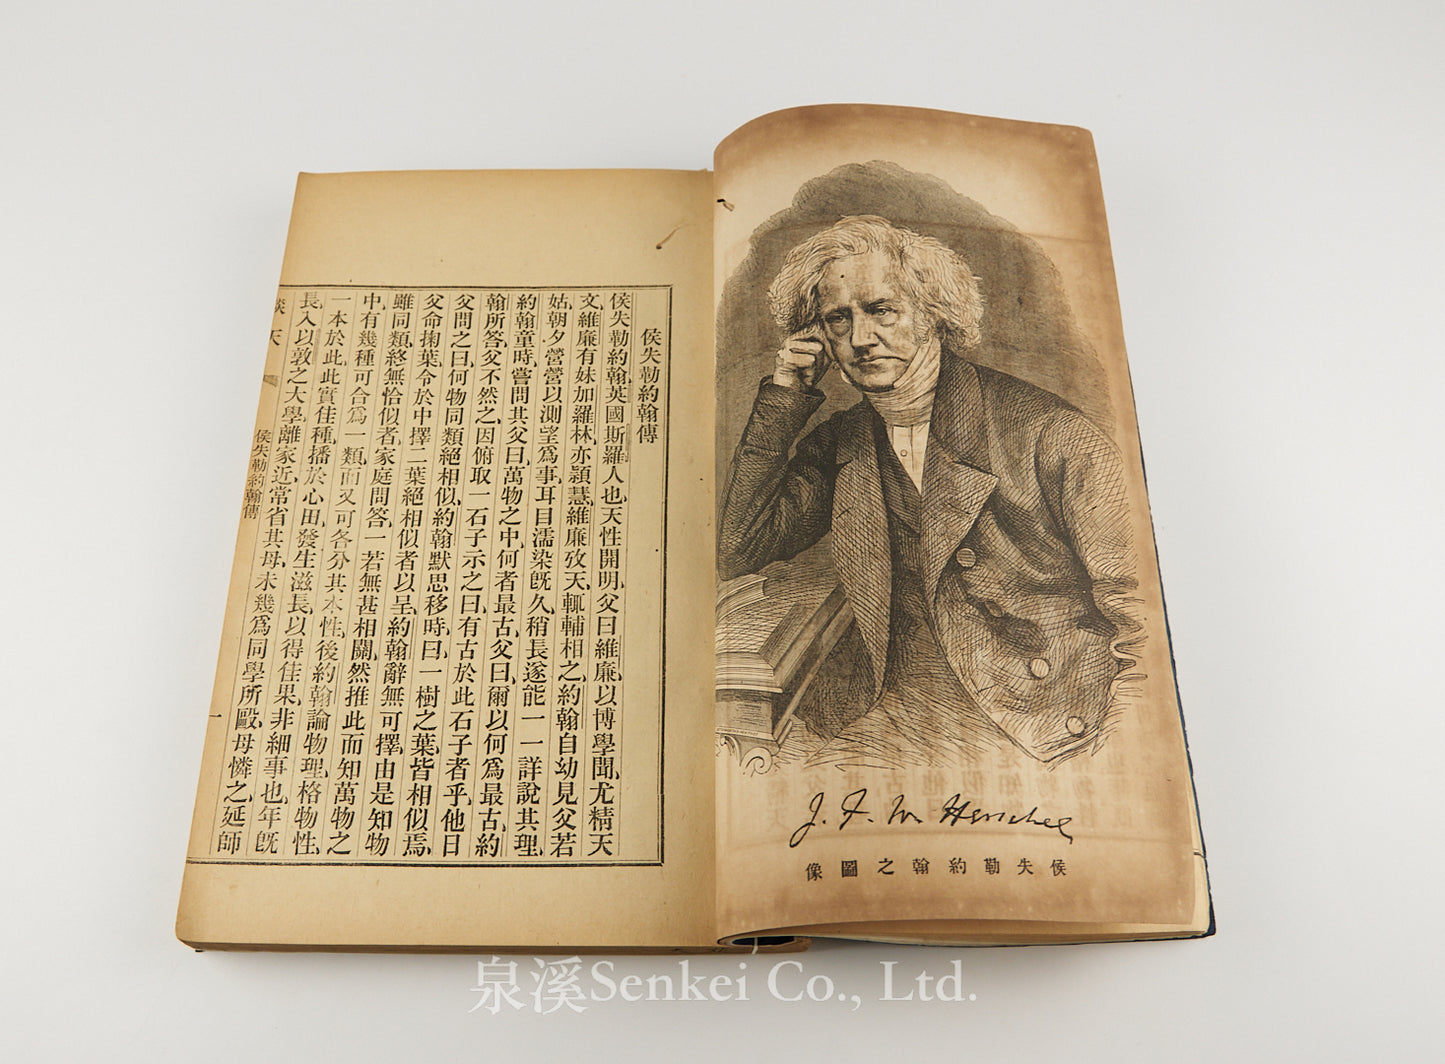 J. F. W. Herschel
侯失勒約翰之圖像
侯失勒約翰傳
侯失勒約翰英國斯羅人也、天性開明、父曰維廉、以博學聞、尤精天
文、維廉有妹加羅林、亦穎慧、維廉攷天、輒輔相之、約翰自幼見父若
姑、朝夕營營以測望爲事、耳目濡染旣久、稍長遂能一一詳說其理、
約翰童時、嘗問其父曰、萬物之中何者最古、父曰、爾以何爲最古、約
翰所答、父不然之、因俯取一石子示之曰、有古於此石子者乎、他日
父問之曰、何物同類絕相似、約翰默思移時曰、一樹之葉、皆相似焉、
父命掬葉、令於中擇二葉絕相似者以呈、約翰辭無可擇、由是知物
雖同類、終無恰似者、家庭問答、一若無甚相關、然推此而知萬物之
中、有幾種可合爲一類、而又可各分其本性、後約翰論物理、格物性、
一本於此、此實佳種、播於心田、發生滋長、以得佳果、非細事也、年旣
長、入以敦之大學、離家近、常省其母、未幾爲同學所毆、母憐之、延師
談天
侯失勒約翰傳
一
泉溪Senkei Co., Ltd.